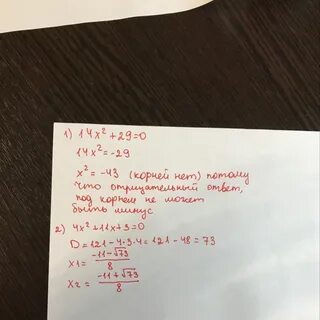 1) 14x² + 29 = 0
14x² = -29
x² = -43 (корней нет) потому
что отрицательный ответ,
под корнем не может
быть минус
2) 4x² + 11x + 3 = 0
D = 121 - 4·3·4 = 121 - 48 = 73
x1 = (-11-√73)/8
x2 = (-11+√73)/8